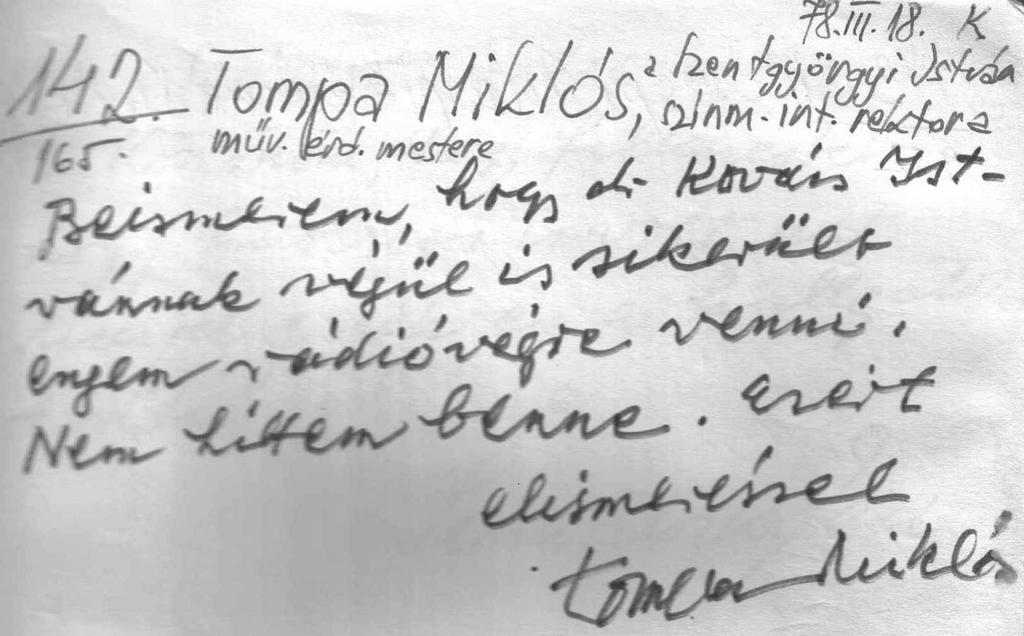 78.III.18. K
142. Tompa Miklós, a Szentgyörgyi István
színm. int. rektora
165. műv. érd. mestere
Beismerem, hogy dr Kovács Ist-
vánnak végül is sikerült
engem rádióvégre venni.
Nem hittem benne. Ezért
elismeréssel
Tompa Miklós